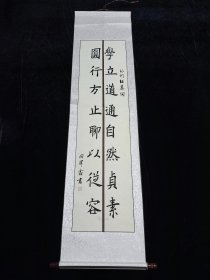 學立道通自然貞素
圓行方止聊以從容